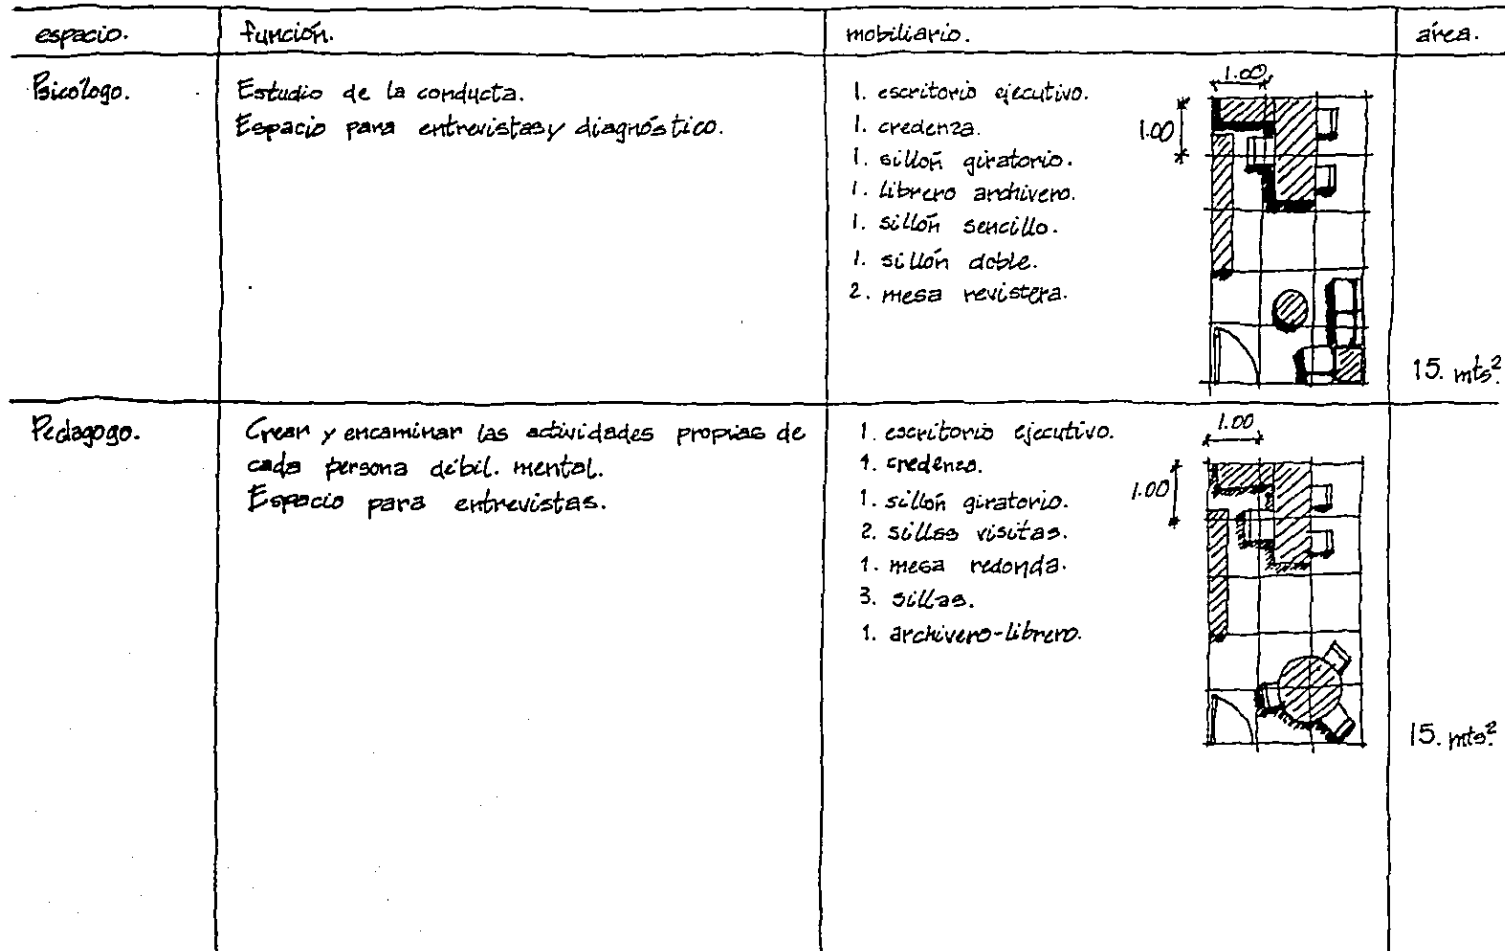 espacio. función. mobiliario. área.
Psicólogo.
Estudio de la conducta.
Espacio para entrevistas y diagnóstico.
1. escritorio ejecutivo.
1. credenza.
1. sillón giratorio.
1. librero archivero.
1. sillón sencillo.
1. sillón doble.
2. mesa revistera.
1.00
1.00
15. mts².
Pedagogo.
Crear y encaminar las actividades propias de
cada persona débil. mental.
Espacio para entrevistas.
1. escritorio ejecutivo.
1. credenza.
1. sillón giratorio.
2. sillas visitas.
1. mesa redonda.
3. sillas.
1. archivero-librero.
1.00
1.00
15. mts².